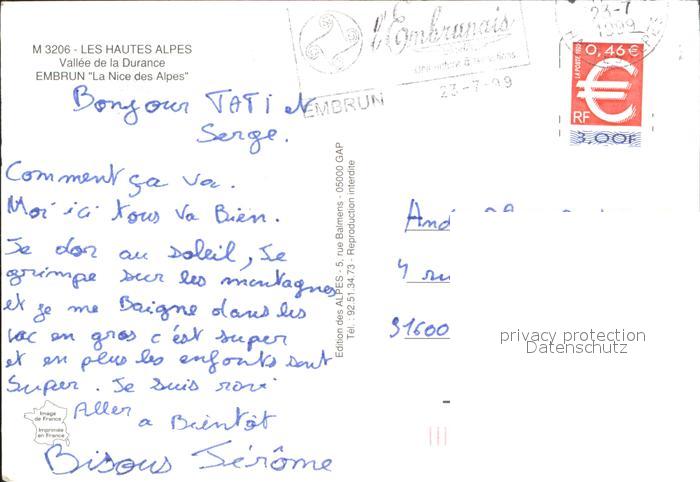 M 3206 - LES HAUTES ALPES
Vallée de la Durance
EMBRUN "La Nice des Alpes"
l'Embrunais
EMBRUN
23-7-99
23-7
1999
0,46€
LA POSTE 1999
€
RF
3,00F
Bonjour TATI et
Serge.
Comment ça va.
Moi ici tous va Bien.
Je dor au soleil, Je
grimpe sur les montagnes
et je me Baigne dans les
lac en gros c'est super
et en plus les enfants sont
Super. Je suis ravi
Aller
a Bientôt
Bisous Jérôme
Edition des ALPES - 5, rue Balmens - 05000 GAP
Tél.: 92.51.34.73 - Reproduction interdite
And
4 ru
91600
privacy protection
Datenschutz
Image
de France
Imprimée
en France